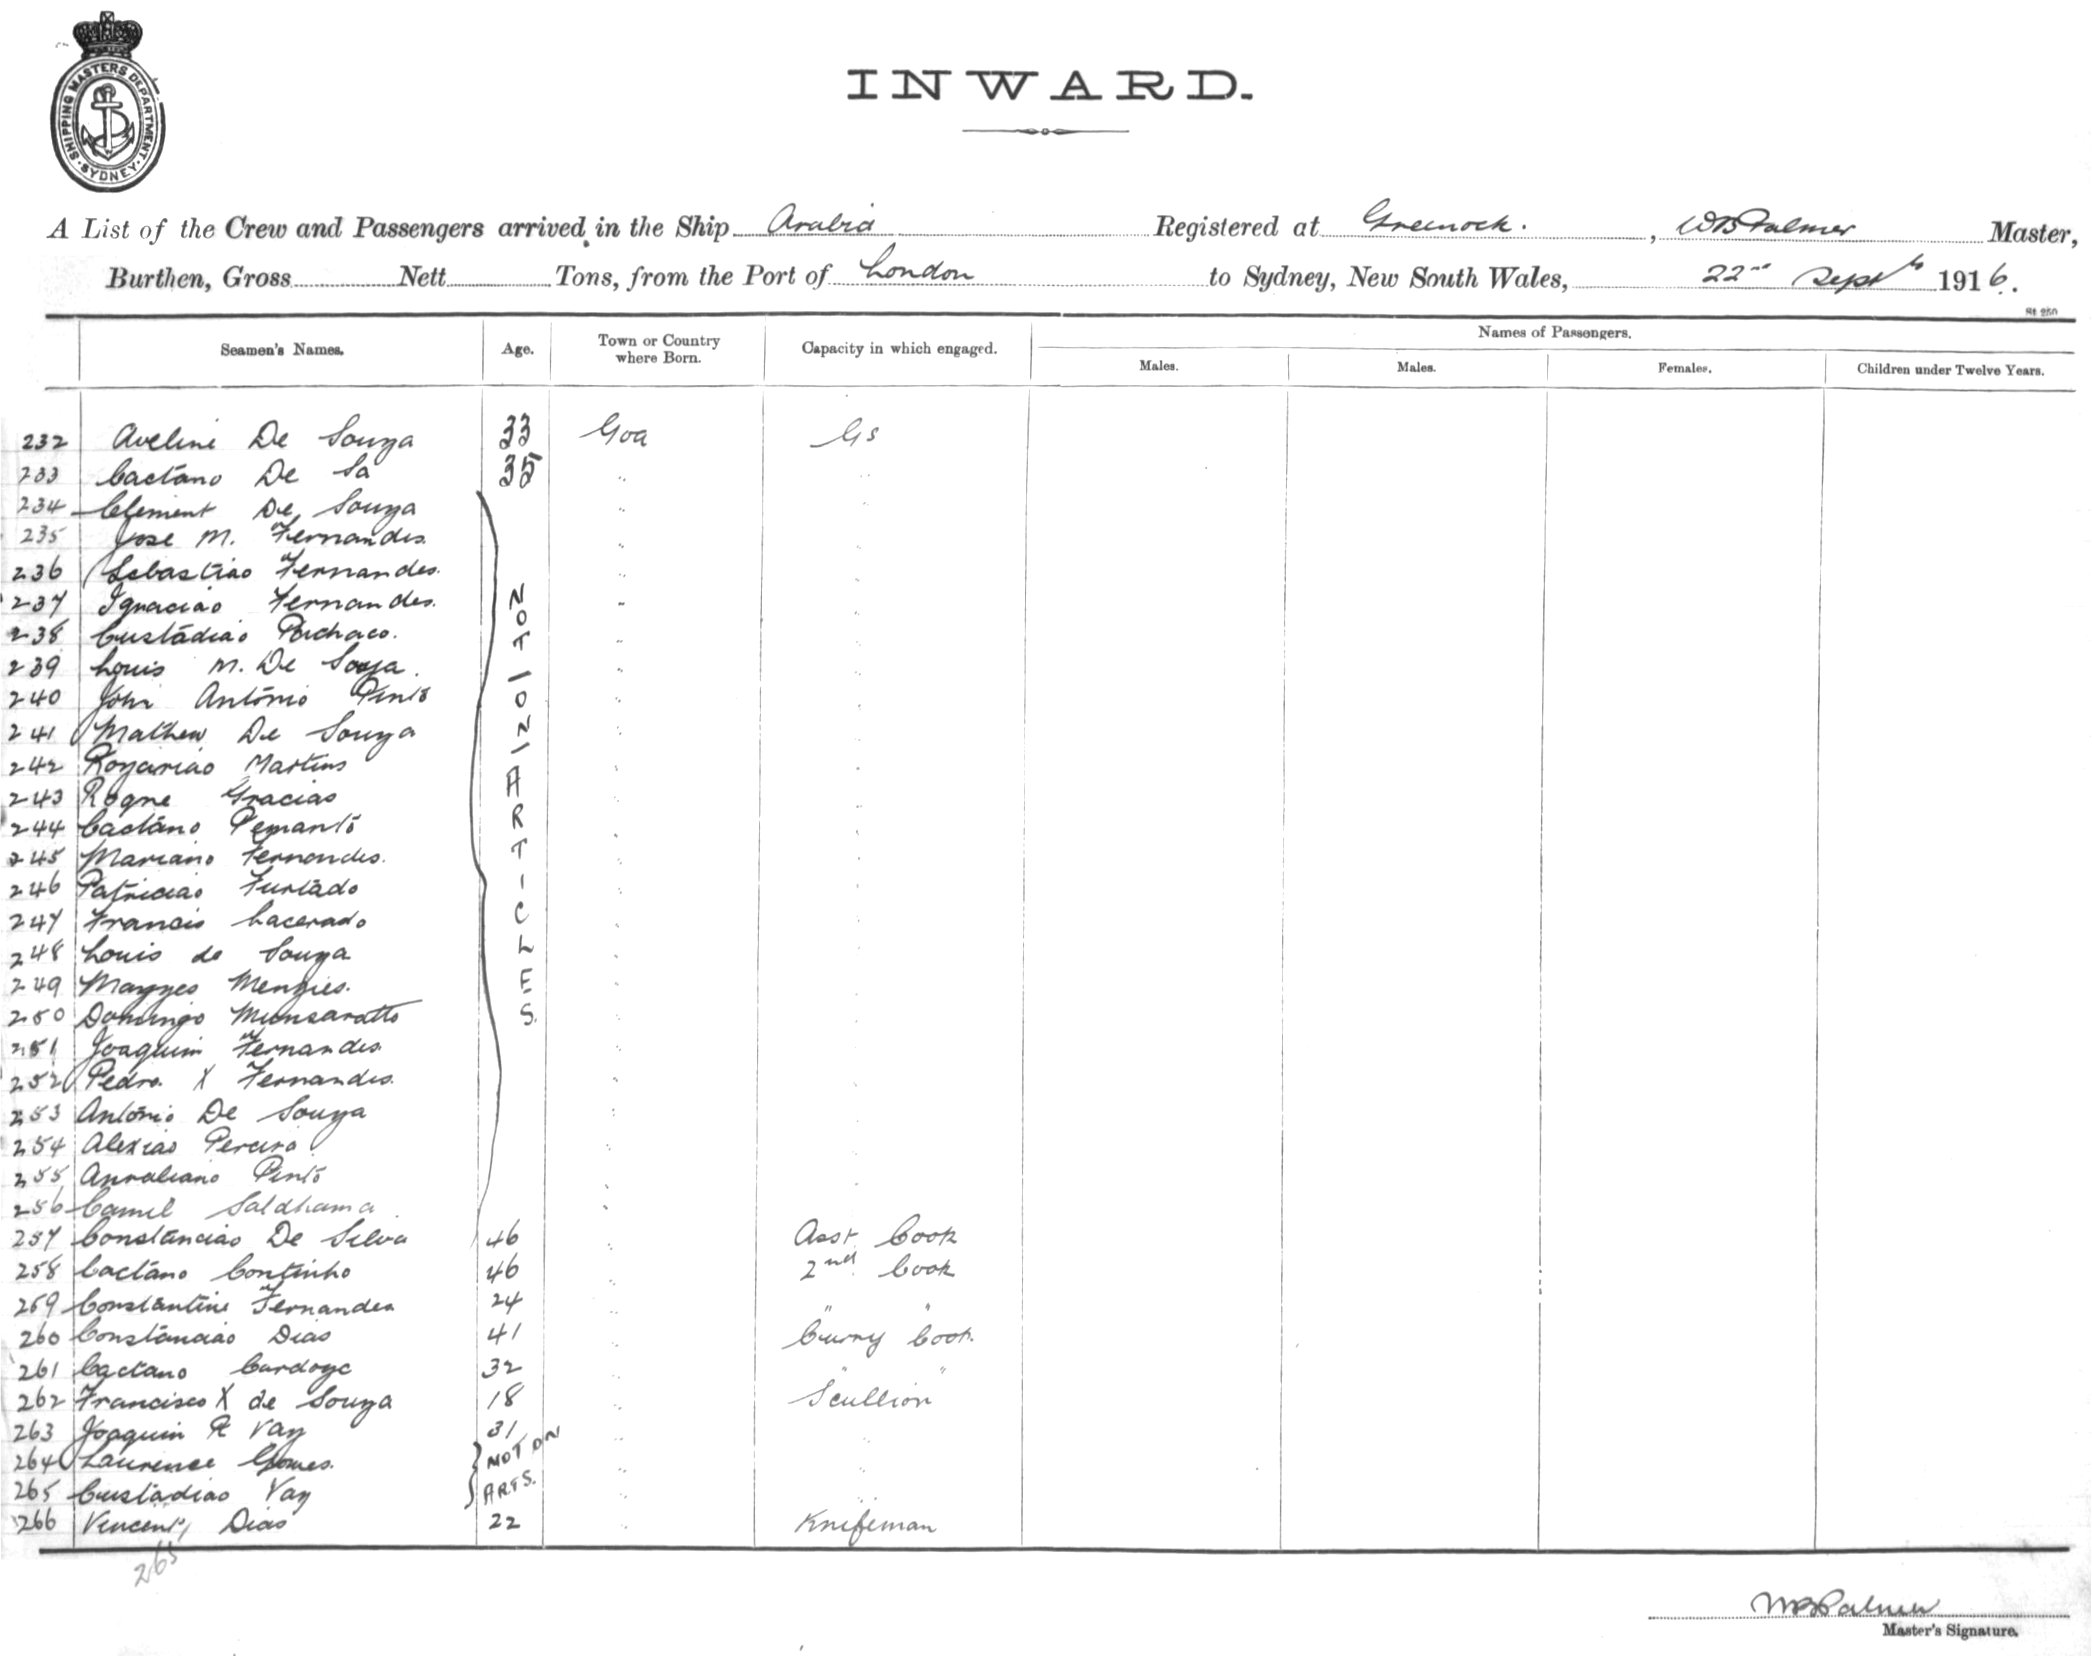 SHIPPING MASTERS DEPARTMENT · SYDNEY ·
INWARD.
A List of the Crew and Passengers arrived in the Ship Arabia Registered at Greenock. , WB Palmer Master,
Burthen, Gross Nett Tons, from the Port of London to Sydney, New South Wales, 22nd Septr 1916.
St 250
Seamen's Names. Age. Town or Country where Born. Capacity in which engaged. Names of Passengers.
Males. Males. Females. Children under Twelve Years.
232 Aveline De Souza 33 Goa Gs
233 Caetano De Sa 35 " "
234 Clement De Souza " "
235 Jose M. Fernandes " "
236 Sebastiao Fernandes. " "
237 Ignaciao Fernandes. " "
238 Custādiao Pachaco. " "
239 Louis M. De Souza. " "
240 John Antonio Pinto " "
241 Mathew De Souza " "
242 Rozariao Martins " "
243 Roque Gracias " "
244 Caetano " "
245 Mariano Fernandes. " "
246 Patriciao Furtado " "
247 Francis Lacerado " "
248 Louis de Souza " "
249 Menzies. " "
250 Domingo Munsaratto " "
251 Joaquim Fernandes " "
252 Pedro X Fernandes. " "
253 Antonio De Souza " "
254 Alexiao Pereira " "
255 Auraliano Pinto " "
256 Camil Saldhama " "
NOT ON ARTICLES.
257 Constanciao De Silva 46 " Asst Cook
258 Caetano Continho 46 " 2nd Cook
259 Constantine Fernandes 24 " " "
260 Constanciao Dias 41 " Curry Cook.
261 Caetano Cardoze 32 " " "
262 Francisco X de Souza 18 " Scullion
263 Joaquim R Vaz 31 " "
264 Laurence Gomes. NOT ON " "
265 Custadiao Vaz ARTS. " "
266 Vincent Dias 22 " Knifeman
265
WB Palmer
Master's Signature.